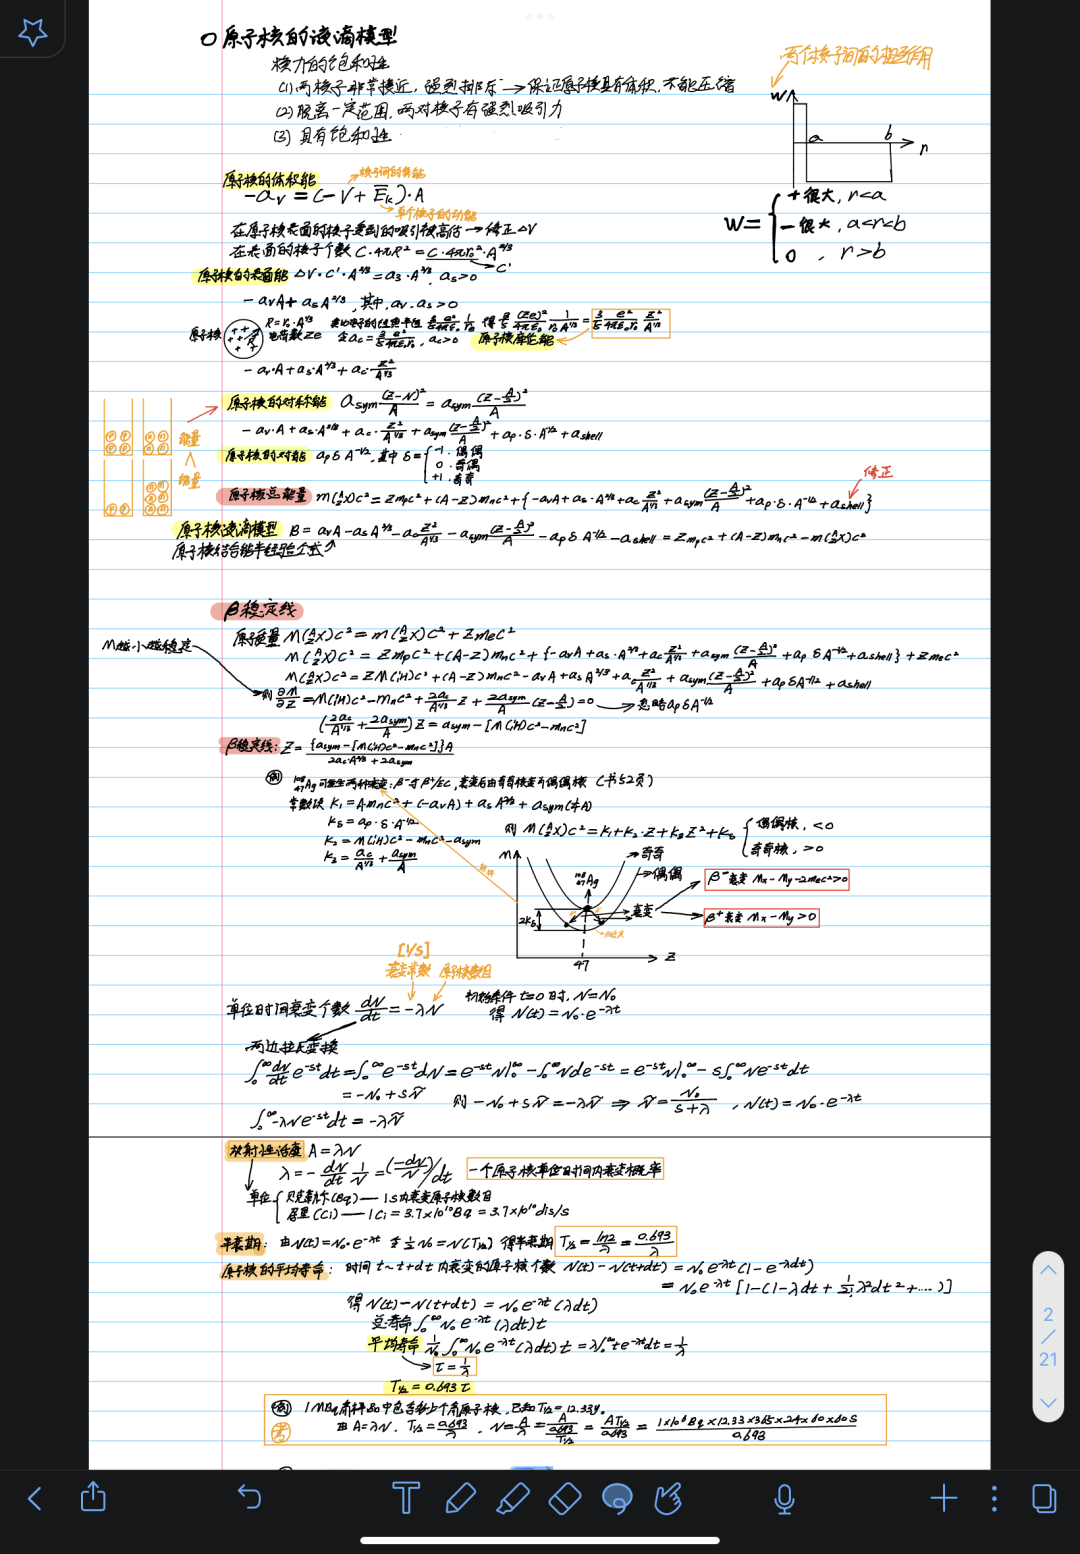 ○ 原子核的液滴模型
核力的饱和性
(1) 两核子非常接近，强烈排斥 → 保证原子核具有体积，不能压缩
(2) 脱离一定范围，两对核子有强烈吸引力
(3) 具有饱和性
两个核子间的相互作用
W
a
b
r
W = { +很大, r<a
-很大, a<r<b
0, r>b
原子核的体积能
核子间的势能
-aᵥ = (-V + Ēₖ)·A
单个核子的动能
在原子核表面的核子受到的吸引较高估 → 修正ΔV
在表面的核子个数 C·4πR² = C·4πr₀²·A^(2/3)
C'
原子核的表面能 ΔV·C'·A^(2/3) = aₛ·A^(2/3), aₛ>0
-aᵥA + aₛA^(2/3), 其中, aᵥ, aₛ>0
原子核
R = r₀·A^(1/3)
电荷数Ze
得 3/5 (Ze)²/4πε₀ 1/r₀A^(1/3) = 3/5 e²/4πε₀r₀ Z²/A^(1/3)
令 a_c = 3/5 e²/4πε₀r₀, a_c>0
原子核库仑能
-aᵥ·A + aₛ·A^(2/3) + a_c·Z²/A^(1/3)
原子核的对称能 a_sym (Z-N)²/A = a_sym (Z-A/2)²/A
-aᵥ·A + aₛ·A^(2/3) + a_c·Z²/A^(1/3) + a_sym (Z-A/2)²/A + a_p·δ·A^(-1/2) + a_shell
能量
能量
原子核的对能 a_pδA^(-1/2), 其中δ = { -1, 偶偶
0, 奇偶
+1, 奇奇
修正
原子核总能量 m(ᴬ_Z X)c² = Zm_pc² + (A-Z)m_nc² + {-aᵥA + aₛ·A^(2/3) + a_c Z²/A^(1/3) + a_sym (Z-A/2)²/A + a_p·δ·A^(-1/2) + a_shell}
原子核液滴模型 B = aᵥA - aₛA^(2/3) - a_c Z²/A^(1/3) - a_sym (Z-A/2)²/A - a_pδA^(-1/2) - a_shell = Zm_pc² + (A-Z)m_nc² - m(ᴬ_Z X)c²
原子核结合能半经验公式
β稳定线
原子质量 M(ᴬ_Z X)c² = m(ᴬ_Z X)c² + Zm_ec²
M越小越稳定
M(ᴬ_Z X)c² = Zm_pc² + (A-Z)m_nc² + {-aᵥA + aₛ·A^(2/3) + a_c Z²/A^(1/3) + a_sym (Z-A/2)²/A + a_pδA^(-1/2) + a_shell} + Zm_ec²
M(ᴬ_Z X)c² = ZM(¹H)c² + (A-Z)m_nc² - aᵥA + aₛA^(2/3) + a_c Z²/A^(1/3) + a_sym (Z-A/2)²/A + a_pδA^(-1/2) + a_shell
则 ∂M/∂Z = M(¹H)c² - m_nc² + 2a_c/A^(1/3) Z + 2a_sym/A (Z-A/2) = 0 → 忽略a_pδA^(-1/2)
(2a_c/A^(1/3) + 2a_sym/A) Z = a_sym - [M(¹H)c² - m_nc²]
β稳定线: Z = {a_sym - [M(¹H)c² - m_nc²]}A / 2a_c·A^(2/3) + 2a_sym
例 ¹⁰⁸₄₇Ag可发生两种衰变: β⁻与β⁺/EC, 衰变后由奇奇核变为偶偶核 (书52页)
常数设 K₁ = Am_nc² + (-aᵥA) + aₛA^(2/3) + a_sym(¼A)
K_δ = a_p·δ·A^(-1/2)
K₂ = M(¹H)c² - m_nc² - a_sym
K₃ = a_c/A^(1/3) + a_sym/A
则 M(ᴬ_Z X)c² = K₁ + K₂·Z + K₃Z² + K_δ { 偶偶核, <0
奇奇核, >0
M
奇奇
偶偶
¹⁰⁸₄₇Ag
衰变
2K_δ
47
Z
β⁻衰变 Mx - My - 2m_ec² > 0
β⁺衰变 Mx - My > 0
[1/s]
衰变常数
原子核数目
单位时间衰变个数 dN/dt = -λN
初始条件 t=0时, N=N₀
得 N(t) = N₀·e^(-λt)
两边拉氏变换
∫₀^∞ dN/dt e^(-st)dt = ∫₀^∞ e^(-st)dN = e^(-st)N|₀^∞ - ∫₀^∞ Nde^(-st) = e^(-st)N|₀^∞ - s∫₀^∞ Ne^(-st)dt
= -N₀ + sÑ
则 -N₀ + sÑ = -λÑ ⇒ Ñ = N₀/(s+λ), N(t) = N₀·e^(-λt)
∫₀^∞ -λNe^(-st)dt = -λÑ
放射性活度 A = λN
λ = -dN/dt 1/N = (-dN/N)/dt
一个原子核单位时间内衰变概率
单位 { 贝克勒尔(Bq) — 1s内衰变原子核数目
居里(Ci) — 1Ci = 3.7×10¹⁰Bq = 3.7×10¹⁰dis/s
半衰期: 由N(t) = N₀·e^(-λt) 令½N₀ = N(T½) 得半衰期 T½ = ln2/λ = 0.693/λ
原子核的平均寿命: 时间 t~t+dt 内衰变的原子核个数 N(t) - N(t+dt) = N₀e^(-λt)(1 - e^(-λdt))
= N₀e^(-λt)[1 - (1 - λdt + 1/2! λ²dt² + ....)]
得 N(t) - N(t+dt) = N₀e^(-λt)(λdt)
总寿命 ∫₀^∞ N₀e^(-λt)(λdt)t
平均寿命 1/N₀ ∫₀^∞ N₀e^(-λt)(λdt)t = λ∫₀^∞ te^(-λt)dt = 1/λ
τ = 1/λ
T½ = 0.693τ
例 1MBq氚样品中包含多少个氚原子核, 已知T½ = 12.33y.
考 由A = λN, T½ = 0.693/λ, N = A/λ = A/(0.693/T½) = AT½/0.693 = 1×10⁶Bq×12.33×365×24×60×60s/0.693
2
/
21